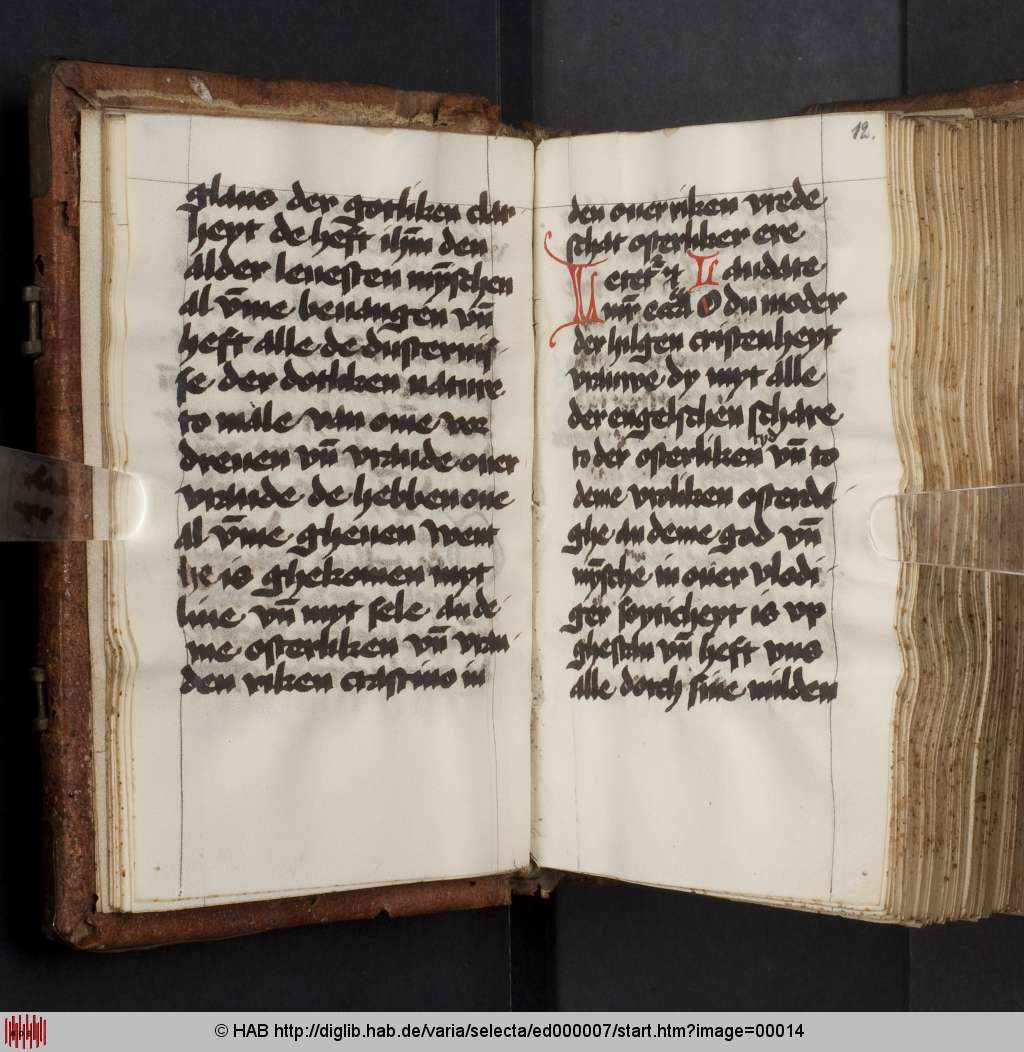 glans der gotliken clar
heyt de heft ih̄m den
alder leuesten mȳschen
al v̄me beuangen vn̄
heft alle de dusternis
se der dotliken nature
to male van ome vor
dreuen vn̄ vraude ouer
vraude de hebben one
al v̄me gheuen went
he is ghekomen myt
liue vn̄ myt sele an de
me osterliken vn̄ vrau
den riken crastino in
12.
den ouer riken vrede
schat osterliker ere
eter Laudate
O du moder
der hilgen cristenheyt
vrauwe dy myt alle
der engelschen schare
to der osterliken tyd vn̄ to
deme vroliken osterda
ghe an deme god vn̄
mȳsche in ouer vlodi
ger soyticheyt is vp
ghestan vn̄ heft vns
alle dorch sine milden
© HAB http://diglib.hab.de/varia/selecta/ed000007/start.htm?image=00014